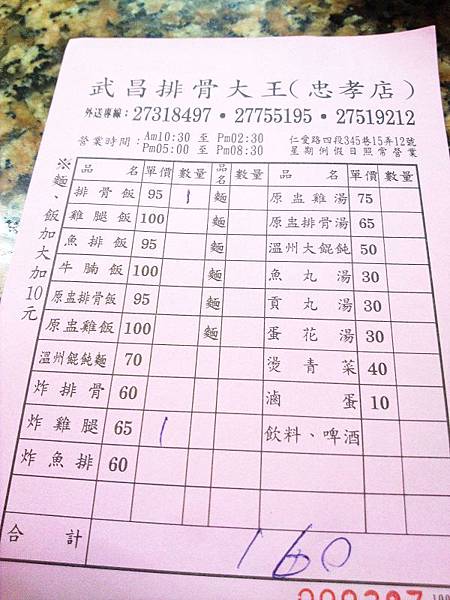 武昌排骨大王(忠孝店)
外送專線：27318497・27755195・27519212
營業時間：Am10:30 至 Pm02:30
Pm05:00 至 Pm08:30
仁愛路四段345巷15弄12號
星期例假日照常營業
※麵、飯加大加10元
品名 單價 數量 品名 數量 品名 單價 數量
排骨飯 95 1 麵 原盅雞湯 75
雞腿飯 100 麵 原盅排骨湯 65
魚排飯 95 溫州大餛飩 50
牛腩飯 100 麵 魚丸湯 30
原盅排骨飯 95 麵 貢丸湯 30
原盅雞飯 100 麵 蛋花湯 30
溫州餛飩麵 70 燙青菜 40
炸排骨 60 滷蛋 10
炸雞腿 65 1 飲料、啤酒
炸魚排 60
合計 160